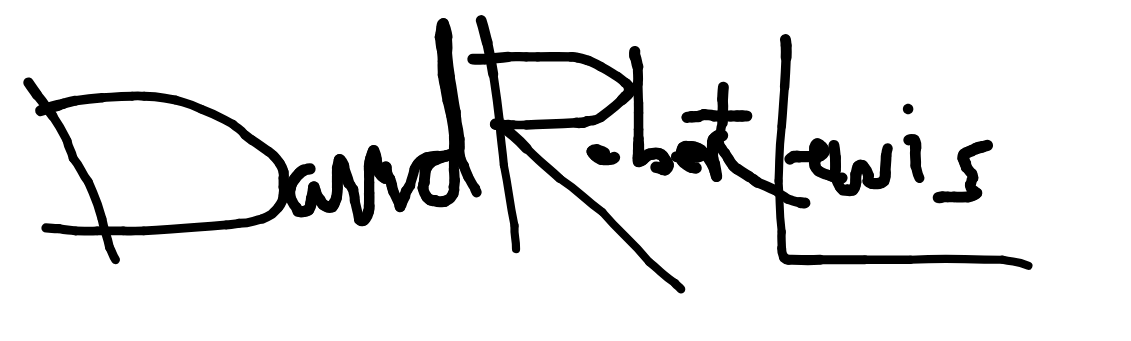 David Robert Lewis